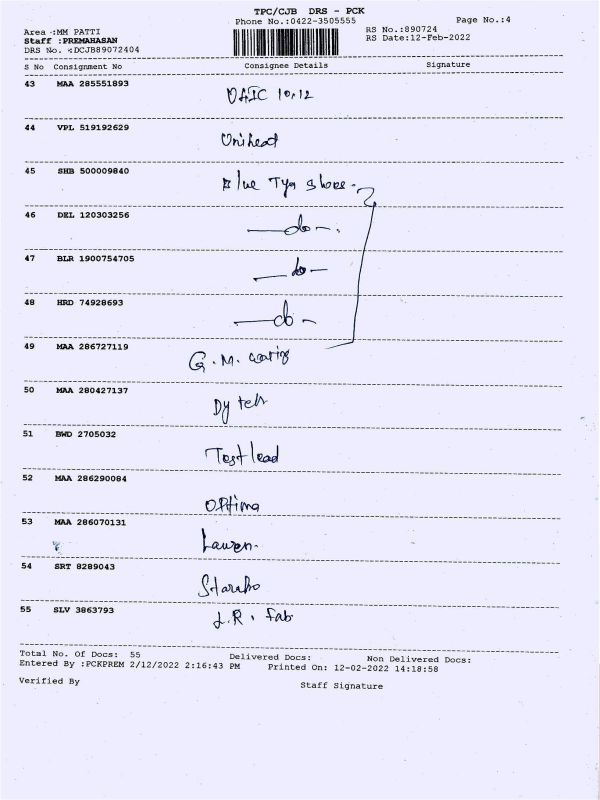 TPC/CJB DRS - PCK
Phone No.:0422-3505555 Page No.:4
Area :MM PATTI RS No.:890724
Staff :PREMAHASAN RS Date:12-Feb-2022
DRS No. :DCJB89072404
S No Consignment No Consignee Details Signature
43 MAA 285551893
10.12
44 VPL 519192629
Unihead
45 SHB 500009840
Blue Tya shore.
46 DEL 120303256
—do—.
47 BLR 1900754705
—do—
48 HRD 74928693
—do—
49 MAA 286727119
G.M.
50 MAA 280427137
Dy teh
51 BWD 2705032
Test lead
52 MAA 286290084
Optima
53 MAA 286070131
Lauren.
54 SRT 8289043
55 SLV 3863793
L.R. Fab
Total No. Of Docs: 55 Delivered Docs: Non Delivered Docs:
Entered By :PCKPREM 2/12/2022 2:16:43 PM Printed On: 12-02-2022 14:18:58
Verified By Staff Signature